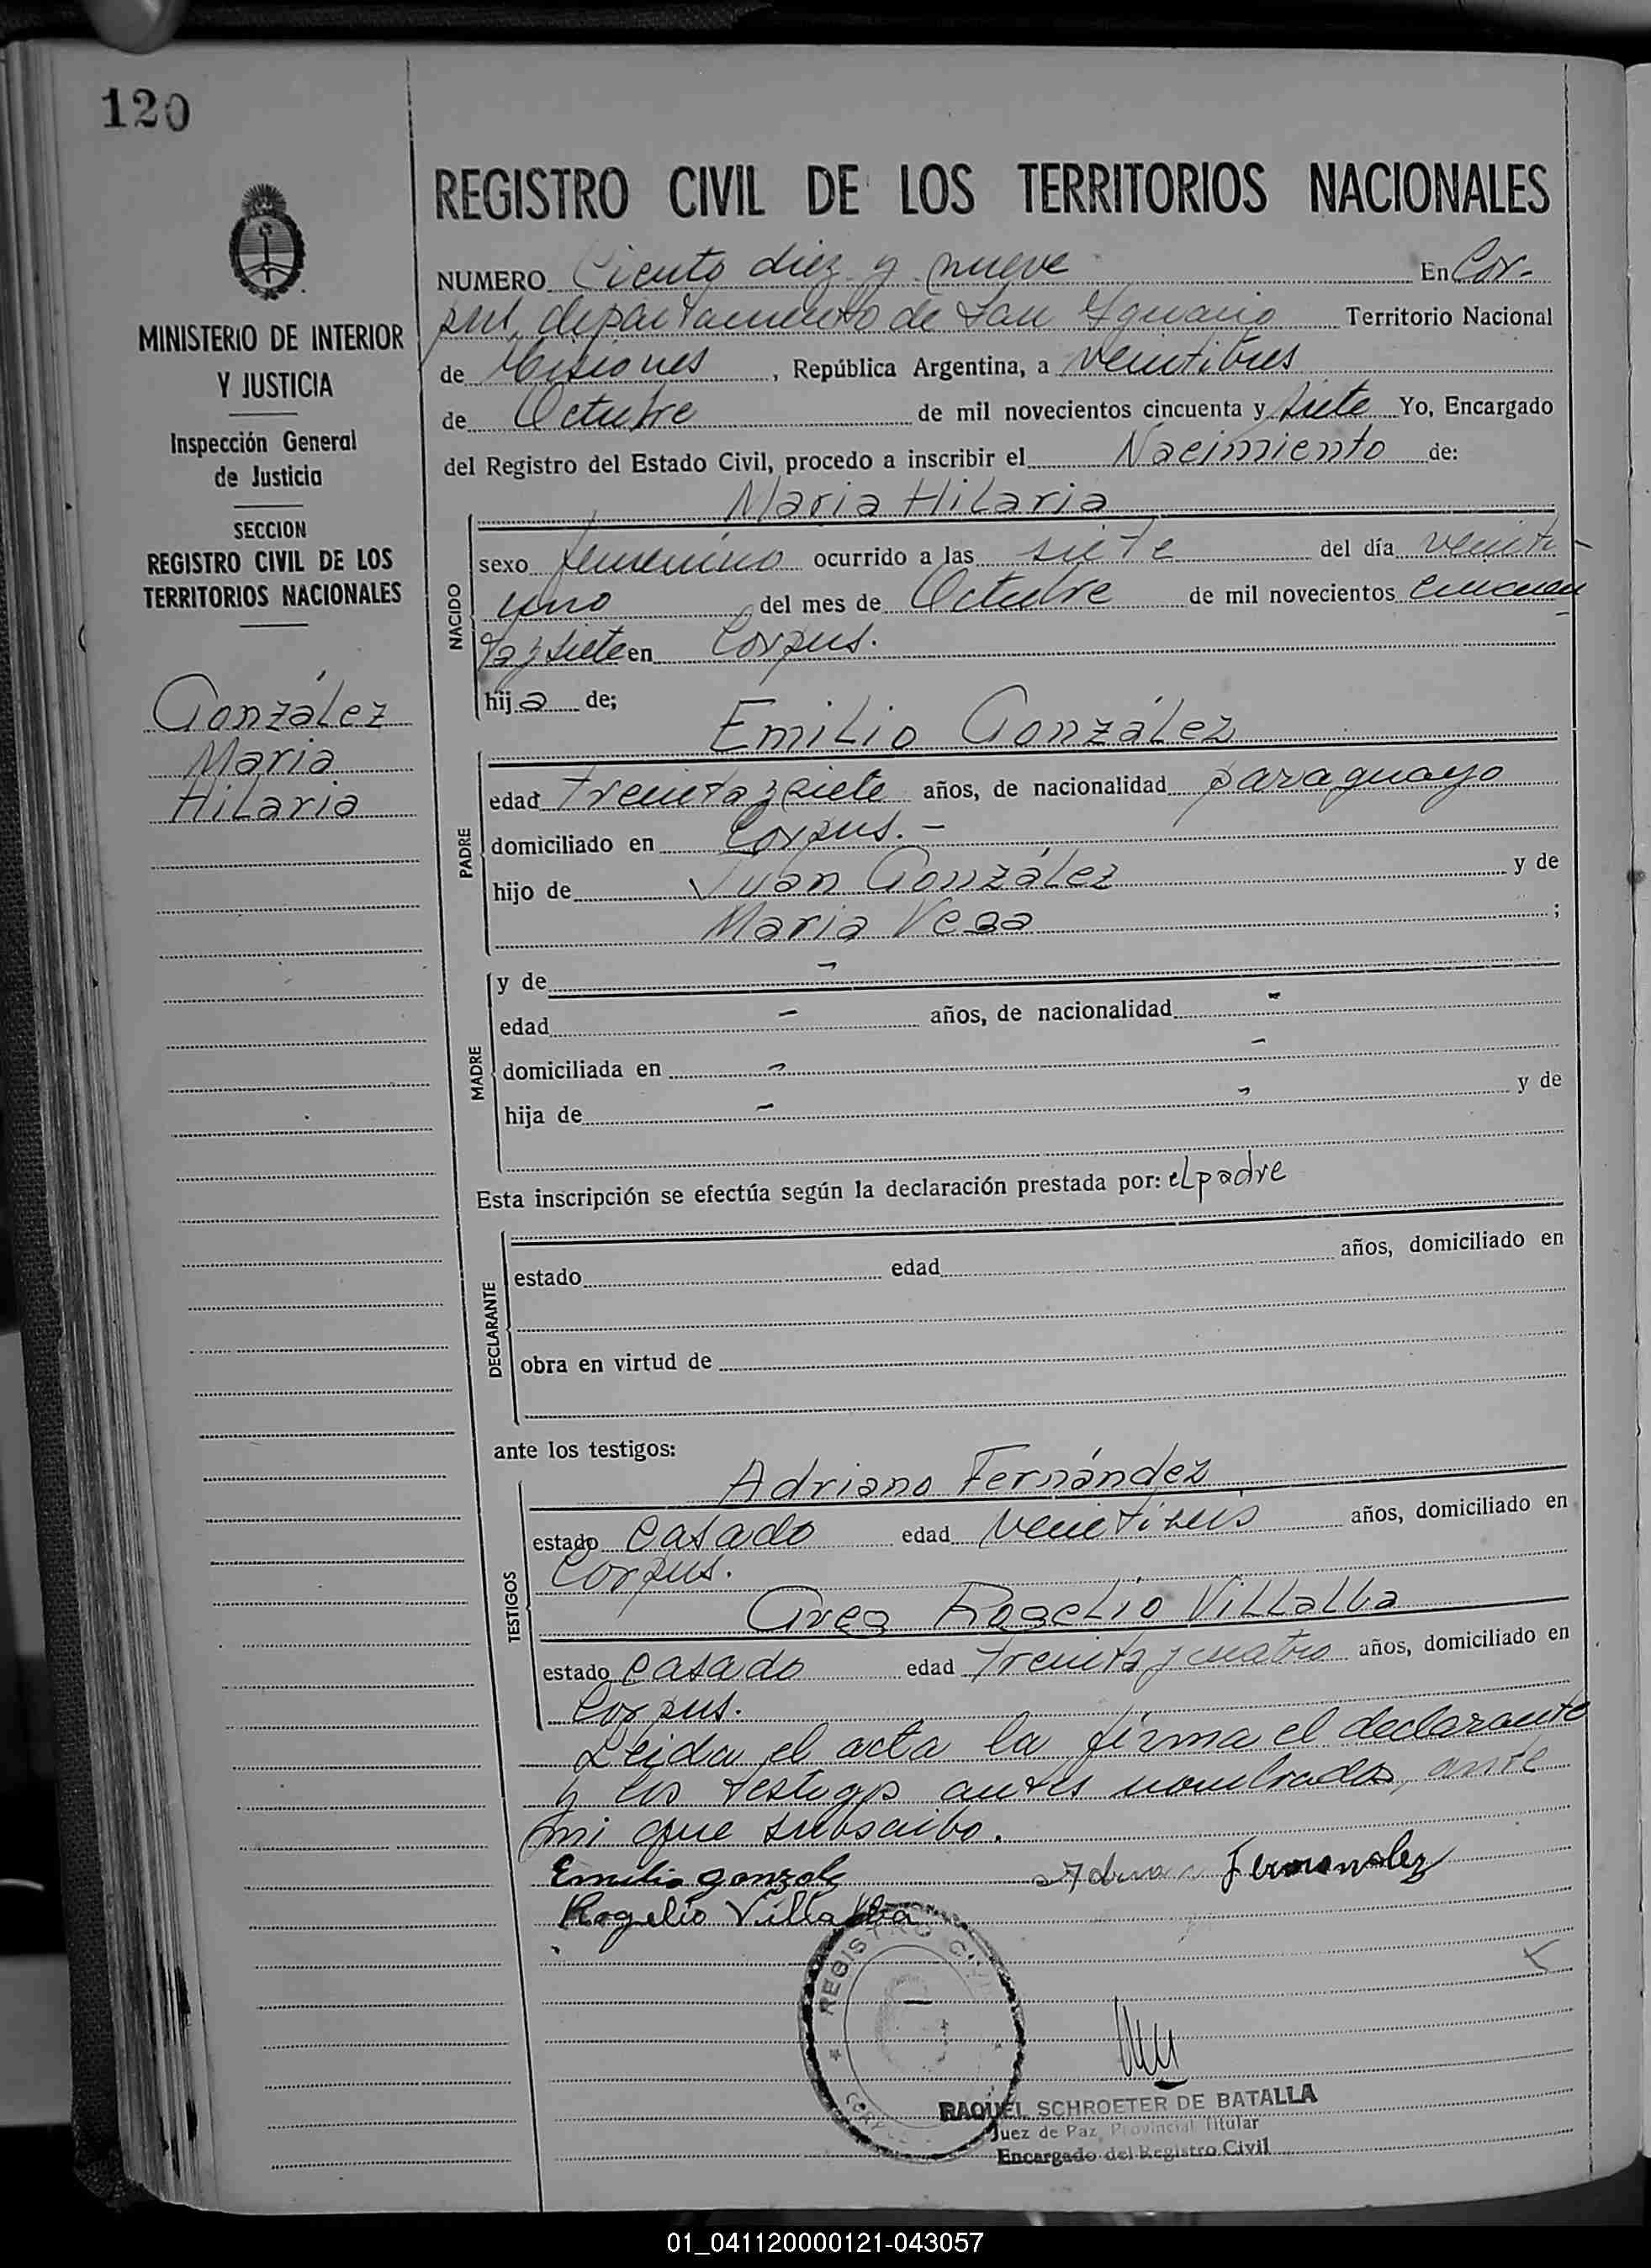 120
REGISTRO CIVIL DE LOS TERRITORIOS NACIONALES
MINISTERIO DE INTERIOR
Y JUSTICIA
Inspección General
de Justicia
SECCION
REGISTRO CIVIL DE LOS
TERRITORIOS NACIONALES
González
Maria
Hilaria
NUMERO Ciento diez y nueve En Cor-
pus, departamento de San Ignacio Territorio Nacional
de Misiones, República Argentina, a veintitres
de Octubre de mil novecientos cincuenta y siete Yo, Encargado
del Registro del Estado Civil, procedo a inscribir el Nacimiento de:
Maria Hilaria
NACIDO
sexo femenino ocurrido a las siete del día veinti-
uno del mes de Octubre de mil novecientos cincuen
ta y siete en Corpus.
hija de;
Emilio González
PADRE
edad treinta y siete años, de nacionalidad paraguayo
domiciliado en Corpus.-
hijo de Juan González y de
Maria Vega ;
MADRE
y de -
edad - años, de nacionalidad -
domiciliada en - -
hija de - - y de
Esta inscripción se efectúa según la declaración prestada por: el padre
DECLARANTE
estado edad años, domiciliado en
obra en virtud de
ante los testigos:
TESTIGOS
Adriano Fernández
estado Casado edad años, domiciliado en
Corpus.
Rogelio Villalba
estado Casado edad Treinta y cuatro años, domiciliado en
Corpus.
Leida el acta la firma el declarante
y los testigos antes nombrados, ante
mi que subscribo.
Emilio gonzale Fernandez
Rogelio Villalba
REGISTRO CIVIL
RAQUEL SCHROETER DE BATALLA
Juez de Paz Provincial Titular
Encargado del Registro Civil
01_041120000121-043057